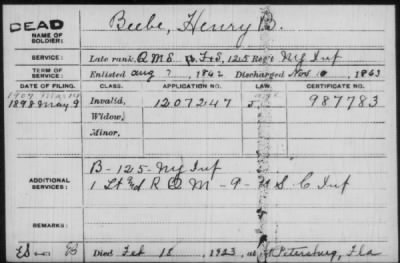 DEAD
NAME OF SOLDIER:
Beebe, Henry B.
SERVICE:
Late rank, Q M S F+S, 125 Reg't Ny Inf
TERM OF SERVICE:
Enlisted Aug 7, 1862 Discharged Nov 1863
DATE OF FILING. CLASS. APPLICATION NO. LAW. CERTIFICATE NO.
1898 May 9 Invalid, 1207247 987783
Widow,
Minor,
ADDITIONAL SERVICES:
B - 125 - Ny Inf
1 Lt and R Q M - 9 - U S C Inf
REMARKS:
Died Feb 18, 1923, at St Petersburg, Fla